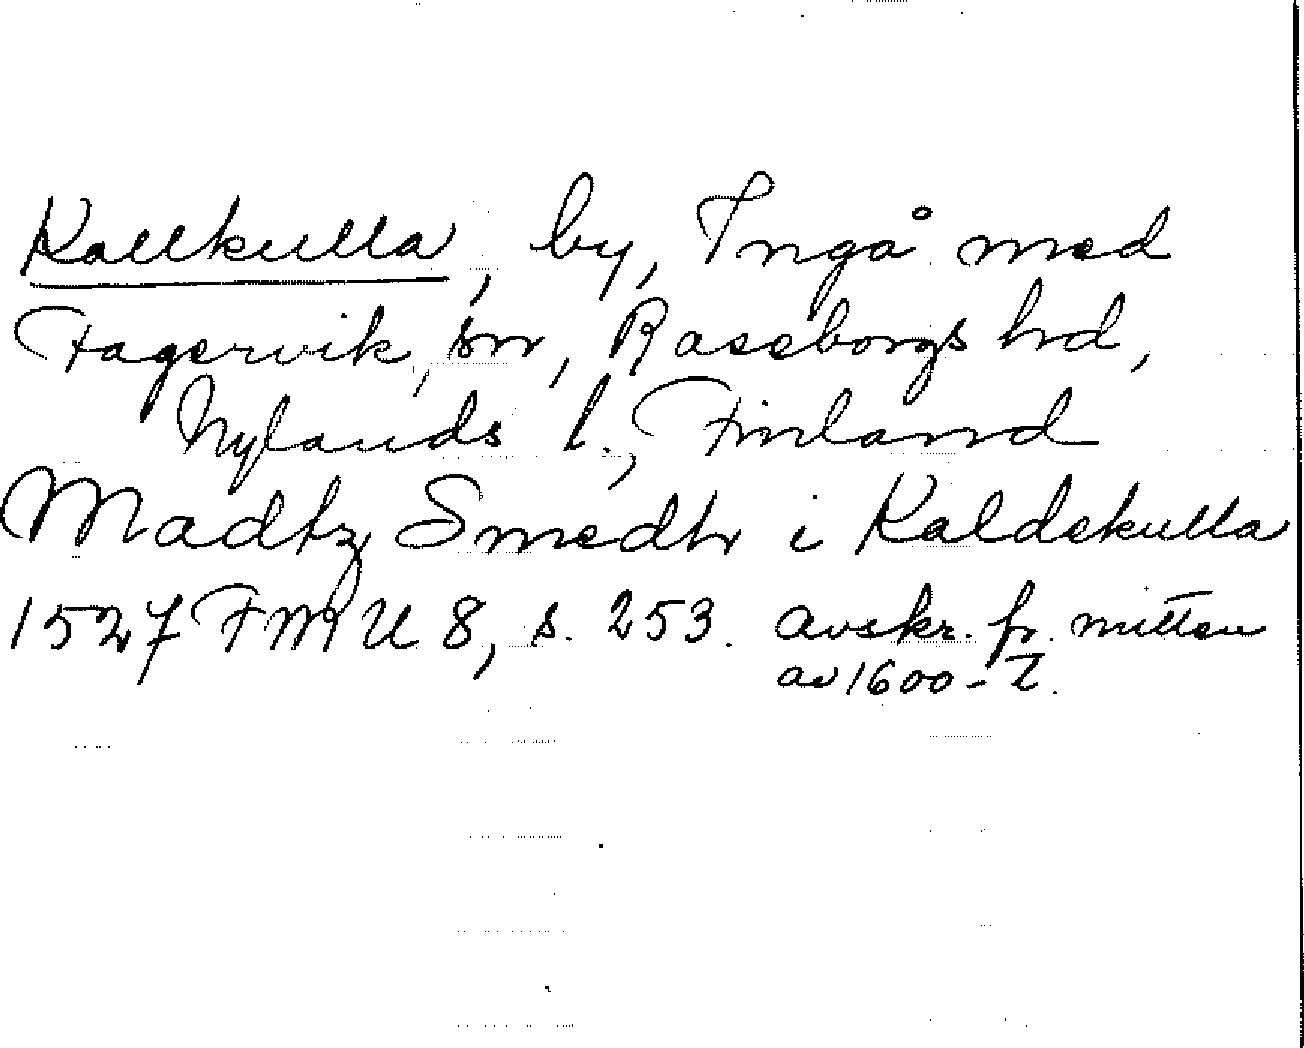 Kallkulla, by, Ingå med
Fagervik, sn, Raseborgs hd,
Nylands l., Finland
Madtz Smedh i Kaldekulla
1527 FMU 8, s. 253. avskr. fr. mitten
av 1600-t.